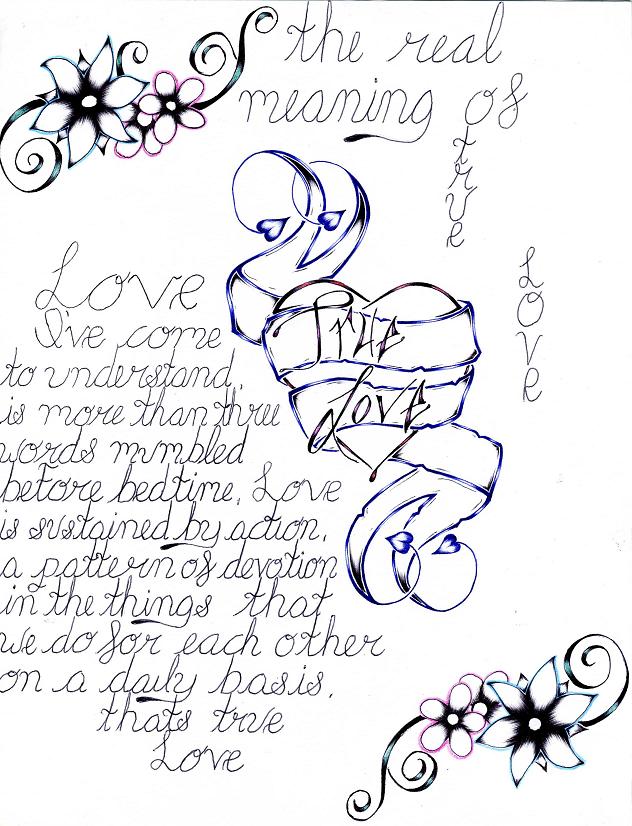 the real
meaning of
true
Love
True
Love
Love
I've come
to understand,
is more than three
words mumbled
before bedtime. Love
is sustained by action,
a pattern of devotion
in the things that
we do for each other
on a daily basis.
thats true
Love